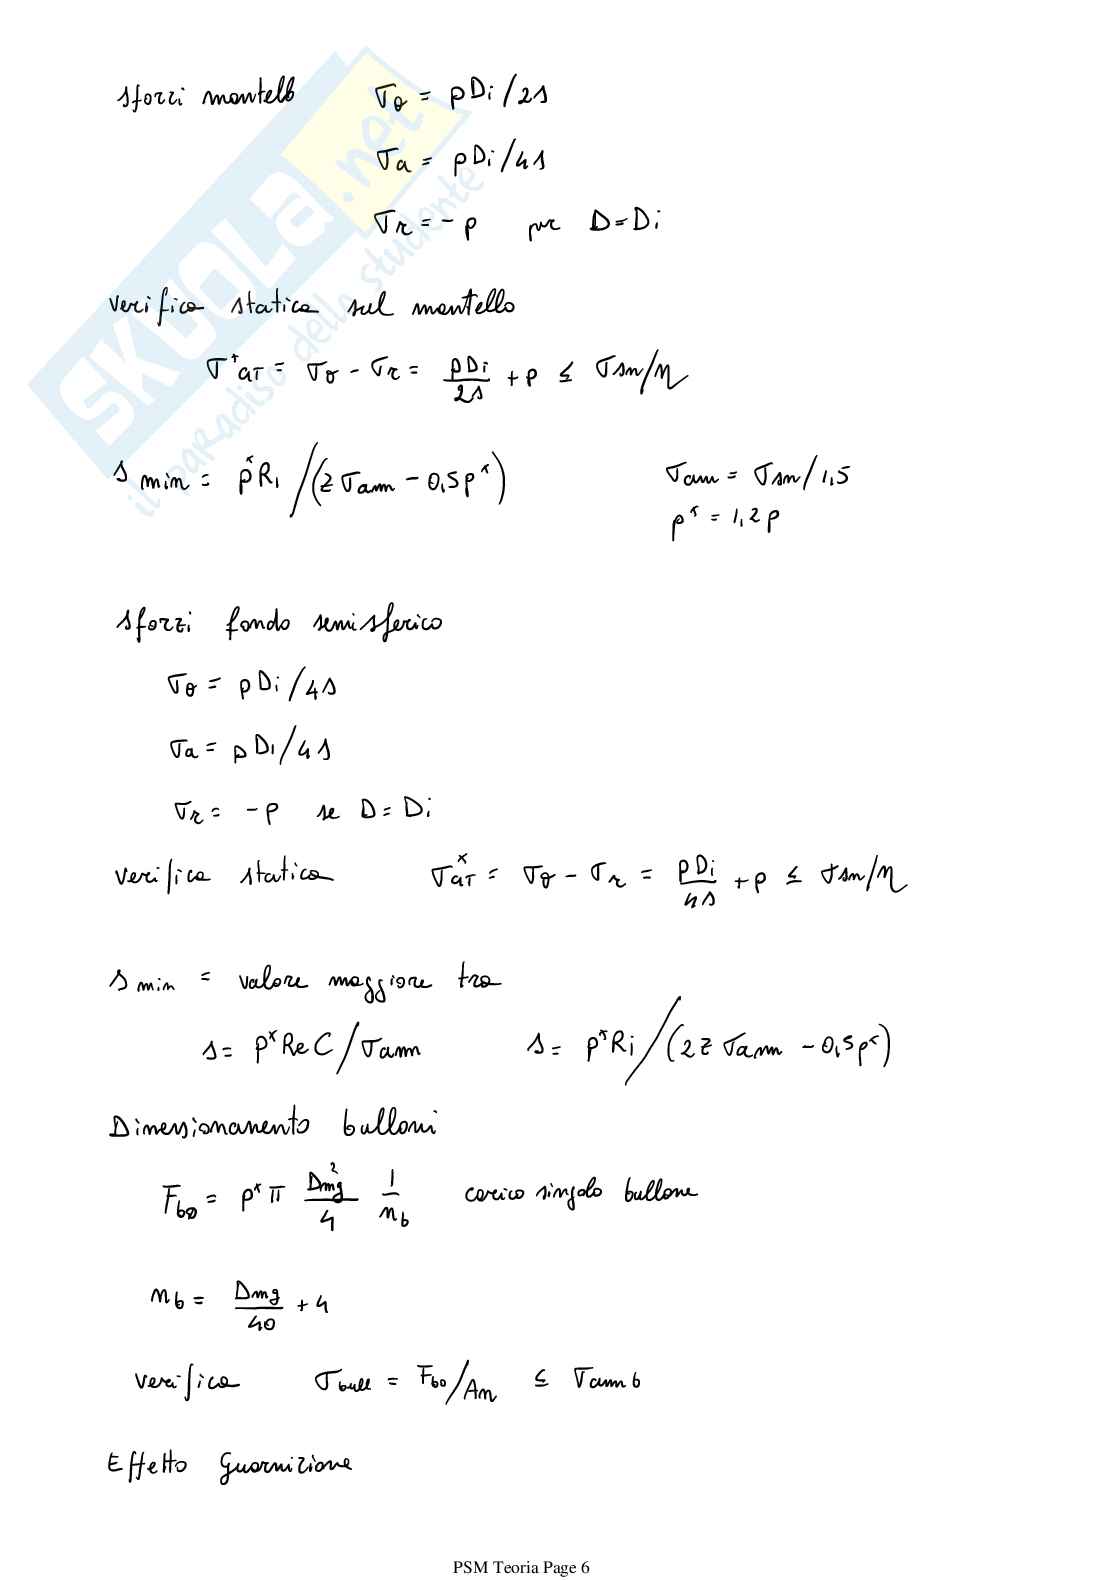 SKUOLA.net
il paradiso dello studente
sforzi mantello σθ = pDi/2s
σa = pDi/4s
σr = -p per D=Di
verifica statica sul mantello
σ*GT = σθ - σr = pDi/2s + p ≤ σsn/η
s min = p*Ri/(z σam - 0,5p*) σam = σsn/1,5
p* = 1,2p
sforzi fondo semisferico
σθ = pDi/4s
σa = pDi/4s
σr = -p se D=Di
verifica statica σ*GT = σθ - σr = pDi/4s + p ≤ σsn/η
s min = valore maggiore tra
s = p*ReC/σam s = p*Ri/(2z σam - 0,5p*)
Dimensionamento bulloni
Fb0 = p* π Dmg²/4 1/nb carico singolo bullone
nb = Dmg/40 + 4
verifica σbull = Fb0/An ≤ σam b
Effetto guarnizione
PSM Teoria Page 6